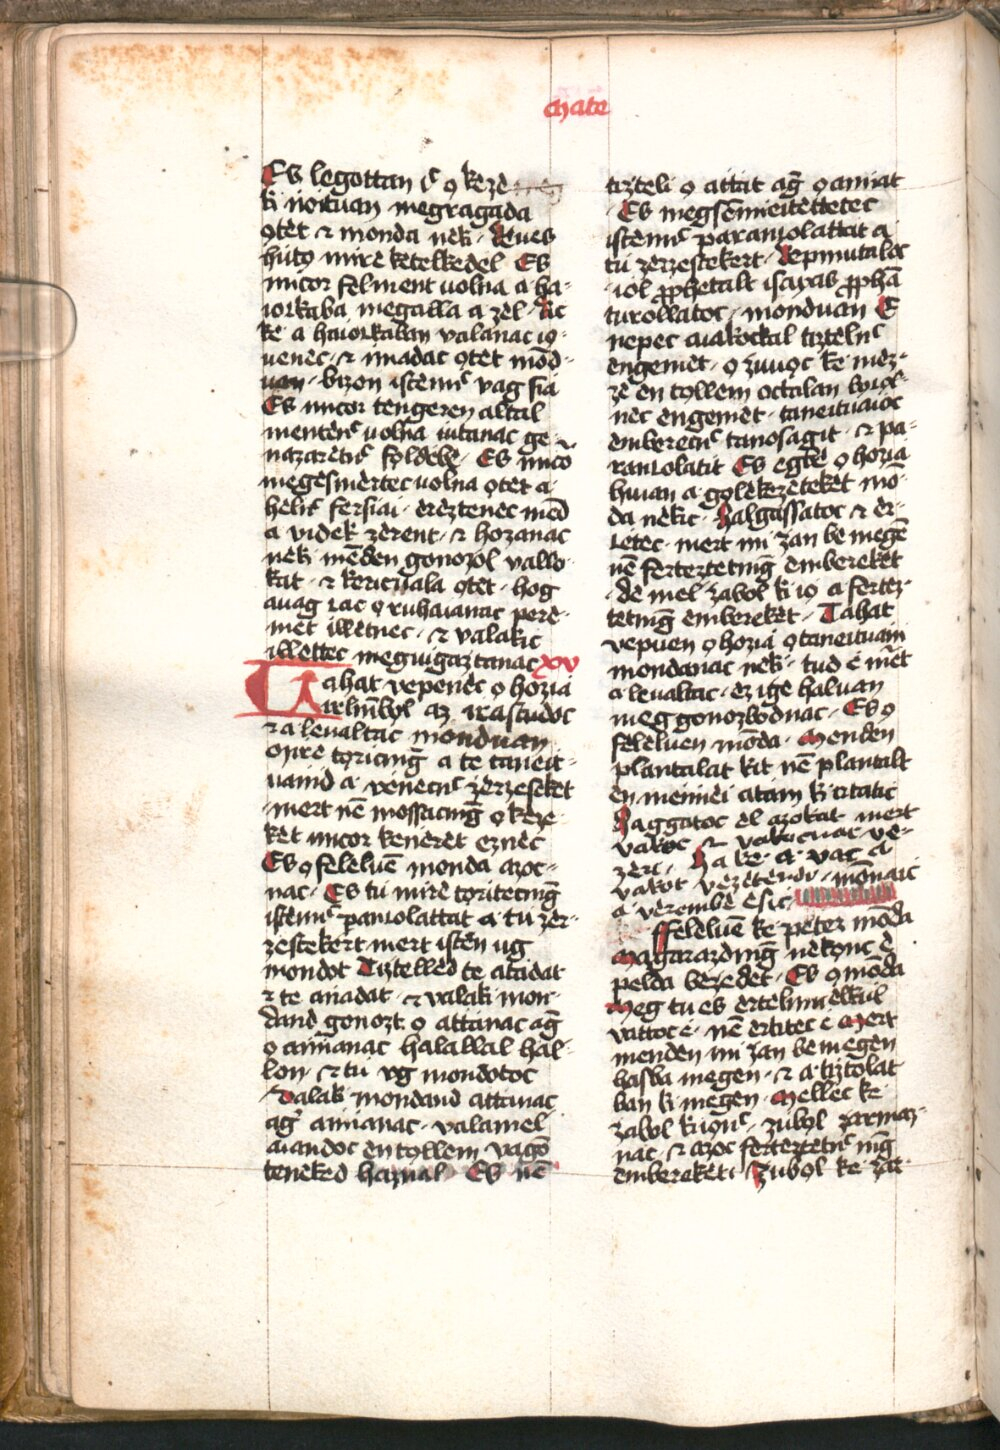 mate
Es legottan iċ ọ kezė
ki noituan megragada
ọtėt ⁊ monda nėk · kėues
hútọ mire ketelkedel Es
micor felment uolna a ha-
iorkaba megalla a zėl · kic
kė a haiorkaban valanac iọ-
uenec · ⁊ imadac ọtėt mōd-
uan · bizon istenn̄c vag fia
Es micor tengeren altal
mentenc̄ uolna iutanac ge-
nazaretnc̄ fọldėbė · Es micō
megėsmertec uolna ọtėt a
helnc̄ ferfiai · ereztenec mėd
a videk zerent · ⁊ hozanac
nėki mēden gonozol vallo-
kat · ⁊ kericuala ọtet · hog
auag cac ọ ruhaianac pere-
mėt illetnec · ⁊ valakic
illettec meguigaztanac xv
Tahat vėpenėc ọ hozia
irlm̄bọl az irastudoc
⁊ a leualtac monduan
Mire toricīg a te taneit-
uanid a · venecnc̄ zerzeseket
mert nē mossacmḡ ọ keze-
ket micor keneret eznėc
Es ọ felelúē monda azoc-
nac · Es tú mire toritecmḡ
istennc̄ parāiolattat a · tú zer-
zestekert mert isten úg
mondot Tiztelled te atadat
⁊ te anadat · ⁊ valaki mon-
dand gonozt ọ attanac aḡ
ọ annanac halallal hal-
lon · ⁊ tú úg mondotoc
Valaki mondand attanac
aḡ annanac · valamel
aiandoc en tollem vagō
teneked haznal Es nē
tizteli ọ attat aḡ ọ annat
Es megsemmeitėttetec
istennc̄ parāiolattat a
tú zerzestekert · kepmutaloc
iol pphetalt isaias pphā
túrollatoc · monduan E
nepec aiakockal tiztelnc̄
engemėt · ọ zúuọc kė mez-
zė en tollem
nec engemėt · taneituaioc
emberecnc̄ tanosagit · ⁊ pa-
rāiolatit Es egbė ọ hozia
hiuan a gọlekezeteket mō-
da nėkic · Halgassatoc ⁊ er-
čėtec · mert mi zan be megē
nē ferteztetmḡ embereket
dė mel zabol ki iọ a fertez-
tetmḡ embereket · Tahat
vepuen ọ hozia ọ taneituani
mondanac nėki · tud ė mėt
a leualtac · ez ige haluan
meg gonozbodnac · Es ọ
felelúen mōda · Menden
plantalat kit nē plantalt
en menniei atiam ki irtatic
Haggatoc el azokat mert
vakoc ⁊ vakocnac ve-
zeri · Ha kė a · vac a
vakot vezetendi · mōnaic
a verembė ėsic
Felelúē kė peter mōda
Magarazdmḡ nekọnc ė
pelda bezedet · Es ọ mōda
Meg tú es ertelmnėlkúl
vattoc ė · nē ertitec ė Mert
menden mi zan be megen
hasba megen · ⁊ a · tiztolat
ban ki megen · Mellec kė
zabol ki iọnc̄ · zúbọl zarmaz-
nac · ⁊ azoc ferteztetnc̄ mḡ
embereket · Zúbọl kė zar